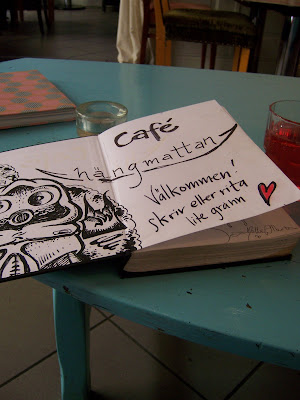 Café
hängmattan
Välkommen!
Skriv eller rita
lite grann